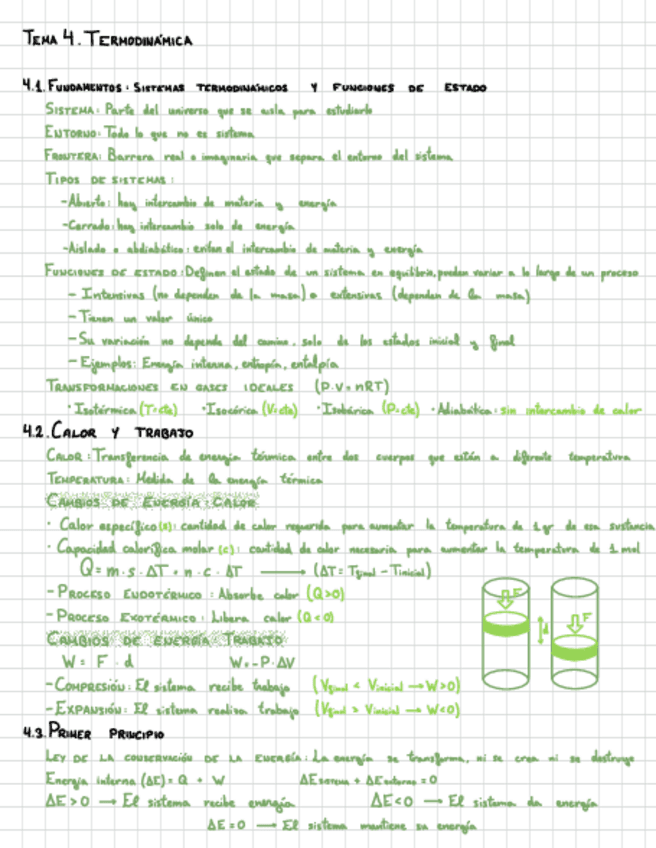 TEMA 4. TERMODINÁMICA
4.1. FUNDAMENTOS: SISTEMAS TERMODINÁMICOS Y FUNCIONES DE ESTADO
SISTEMA: Parte del universo que se aisla para estudiarlo
ENTORNO: Todo lo que no es sistema
FRONTERA: Barrera real o imaginaria que separa el entorno del sistema
TIPOS DE SISTEMAS:
-Abierto: hay intercambio de materia y energía
-Cerrado: hay intercambio solo de energía
-Aislado o abdiabático: evitan el intercambio de materia y energía
FUNCIONES DE ESTADO: Definen el estado de un sistema en equilibrio, pueden variar a lo largo de un proceso
- Intensivas (no dependen de la masa) o extensivas (dependen de la masa)
- Tienen un valor único
- Su variación no depende del camino, solo de los estados inicial y final
- Ejemplos: Energía interna, entropía, entalpía
TRANSFORMACIONES EN GASES IDEALES (P·V=nRT)
· Isotérmica (T=cta) · Isocórica (V=cta) · Isobárica (P=cte) · Adiabática: sin intercambio de calor
4.2. CALOR Y TRABAJO
CALOR: Transferencia de energía térmica entre dos cuerpos que están a diferente temperatura
TEMPERATURA: Medida de la energía térmica
CAMBIOS DE ENERGÍA: CALOR
· Calor específico (s): cantidad de calor requerida para aumentar la temperatura de 1 gr de esa sustancia
· Capacidad calorífica molar (c): cantidad de calor necesaria para aumentar la temperatura de 1 mol
Q = m · s · ΔT = n · c · ΔT ⟶ (ΔT = Tfinal - Tinicial)
- PROCESO ENDOTÉRMICO: Absorbe calor (Q>0)
- PROCESO EXOTÉRMICO: Libera calor (Q<0)
F
F
d
CAMBIOS DE ENERGÍA: TRABAJO
W = F · d W=-P·ΔV
-COMPRESIÓN: El sistema recibe trabajo (Vfinal < Vinicial → W>0)
-EXPANSIÓN: El sistema realiza trabajo (Vfinal > Vinicial → W<0)
4.3. PRIMER PRINCIPIO
LEY DE LA CONSERVACIÓN DE LA ENERGÍA: La energía se transforma, ni se crea ni se destruye
Energía interna (ΔE) = Q + W ΔEsistema + ΔEentorno = 0
ΔE>0 → El sistema recibe energía ΔE<0 → El sistema da energía
ΔE=0 → El sistema mantiene su energía